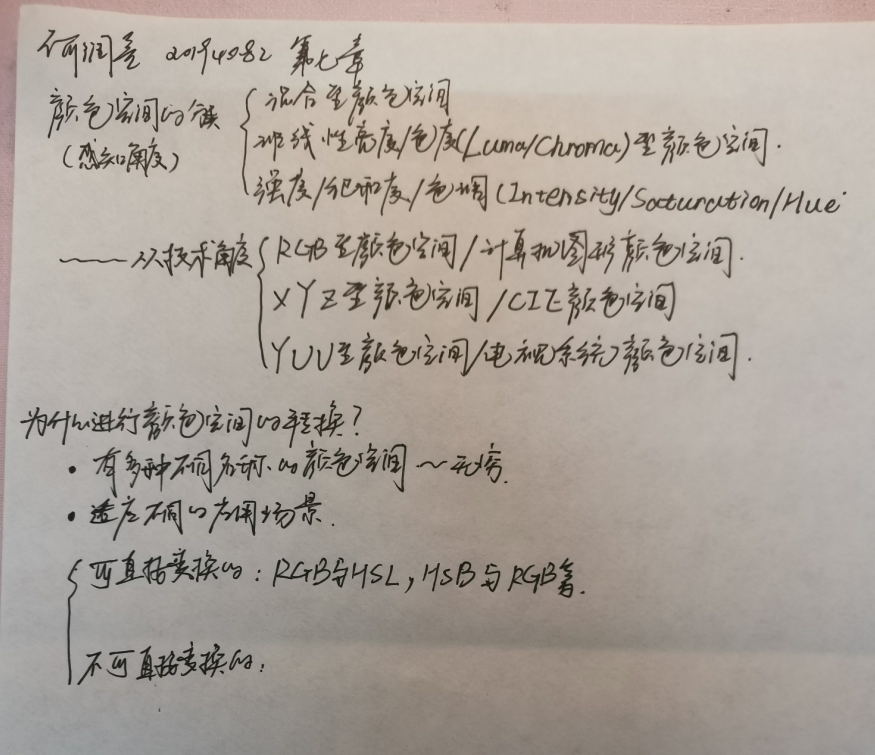 何润 20194082 第七章
颜色空间的分类
(感知角度)
混合型颜色空间
非线性亮度/色度(Luma/Chroma)型颜色空间.
强度/饱和度/色调(Intensity/Saturation/Hue
—— 从技术角度
RGB型颜色空间/计算机图形颜色空间.
XYZ型颜色空间/CIE颜色空间
YUV型颜色空间/电视系统颜色空间.
为什么进行颜色空间的转换?
• 有多种不同名称的颜色空间 ~
• 适应不同的应用场景.
可直接变换的: RGB与HSL, HSB与RGB等.
不可直接变换的: